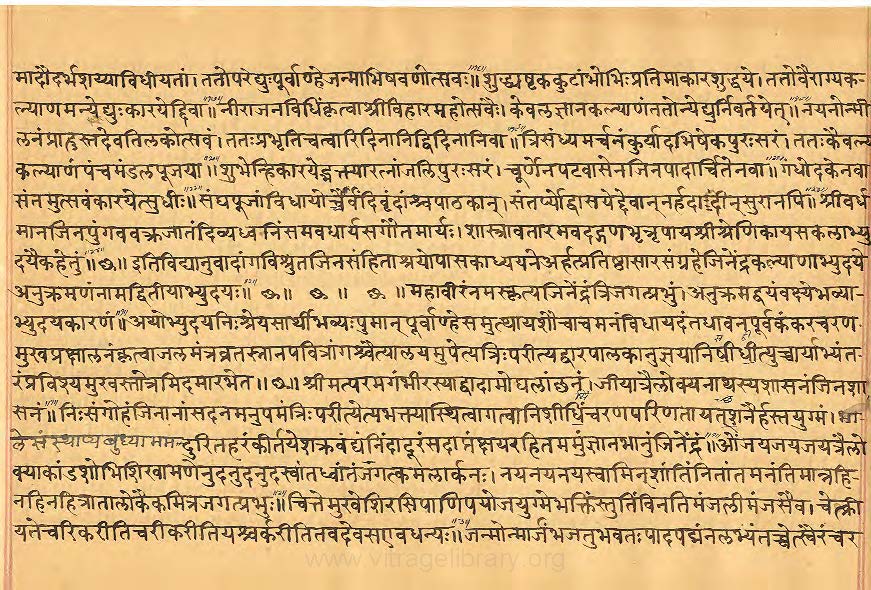 मादौदर्भशय्याविधीयतां। ततोपरेद्युःपूर्वाण्हेजन्माभिषवणोत्सवः॥ शुद्ध्यष्टककुटांभोभिःप्रतिमाकारशुद्धये। ततोवैराग्यक-
ल्याणमन्येद्युःकारयेद्दिवा॥ नीराजनविधिंकृत्वाश्रीविहारमहोत्सवैः। केवलज्ञानकल्याणंततोन्येद्युर्निवर्तयेत्॥ नयनोन्मी
लनंप्राहुस्तदेवतिलकोत्सवं। ततःप्रभृतिचत्वारिदिनानिद्विदिनानिवा॥ त्रिसंध्यमर्चनंकुर्यादभिषेकपुरःसरं। ततःकैवल्य
कल्याणंपंचमंडलपूजया॥ शुभेन्हिकारयेद्भक्त्यारत्नांजलिपुरःसरं। चूर्णेनपटवासेनजिनपादार्चितेनवा॥ गंधोदकेनवा
संतमुत्सवंकारयेत्सुधीः॥ संघपूजांविधायोच्चैर्वंदिवृंदांश्चपाठकान्। संतर्प्योद्वासयेद्देवान्नर्हदादीन्सुरानपि॥ श्रीवर्ध
मानजिनपुंगववक्रजातंदिव्यध्वनिंसमवधार्यसगौतमार्यः। शास्त्रावतारमवदद्गणभृन्नृपायश्रीश्रेणिकायसकलाभ्यु
दयैकहेतुं॥ इतिविद्यानुवादांगविश्रुतजिनसंहिताश्रयोपासकाध्ययनेअर्हत्प्रतिष्ठासारसंग्रहेजिनेंद्रकल्याणाभ्युदये
अनुक्रमणंनामद्वितीयाभ्युदयः॥ महावीरंनमस्कृत्यजिनेंद्रंत्रिजगत्प्रभुं। अनुक्रमद्वयंवक्ष्येभव्या-
भ्युदयकारणं॥ अथोभ्युदयनिःश्रेयसार्थीभव्यःपुमान् पूर्वाण्हेसमुत्थायशौचाचमनंविधायदंतधावनपूर्वकंकरचरण-
मुखप्रक्षालनंकृत्वाजलमंत्रव्रतस्नानपवित्रांगश्चैत्यालयमुपेत्यत्रिःपरीत्यद्वारपालकानुज्ञयानिषीधीत्युच्चार्याभ्यंत-
रंप्रविश्यमुखवस्तोत्रमिदमारभेत॥ श्रीमत्परमगंभीरस्याद्वादामोघलांछनं। जीयात्रैलोक्यनाथस्यशासनंजिनशा
सनं॥ निःसंगोहंजिनानांसदनमनुपमंत्रिःपरीत्येत्यभक्त्यास्थित्वागत्वानिशीधिंचरणपरिणतायत्शनैर्हस्तयुग्मं। भा-
लेसंस्थाप्यबुध्यामम दुरितहरंकीर्तयेशक्रवंद्यंनिंदादूरंसदाप्तंक्षयरहितममुंज्ञानभानुंजिनेंद्रं॥ ओंजयजयजयत्रैलो
क्याकांडशोभिशिखामणेनुदनुदनुदस्वांतध्वांतंजगत्कमलार्कनः। नयनयनयस्वामिन्शांतिंनितांतमनंतिमान्नहि-
नहिनहित्रातालोकैकमित्रजगत्प्रभुः॥ चित्तेमुखेशिरसिपाणिपयोजयुग्मेभक्तिंस्तुतिंविनतिमंजलीमंजसैव। चेत्क्री
यतेचरिकरीतिचरीकरीतियश्चर्करीतितवदेवसएवधन्यः॥ जन्मोन्मार्ज्यंभजतुभवतःपादपद्मंनलभ्यंतच्चेत्स्वैरंचर
www.vitragelibrary.org